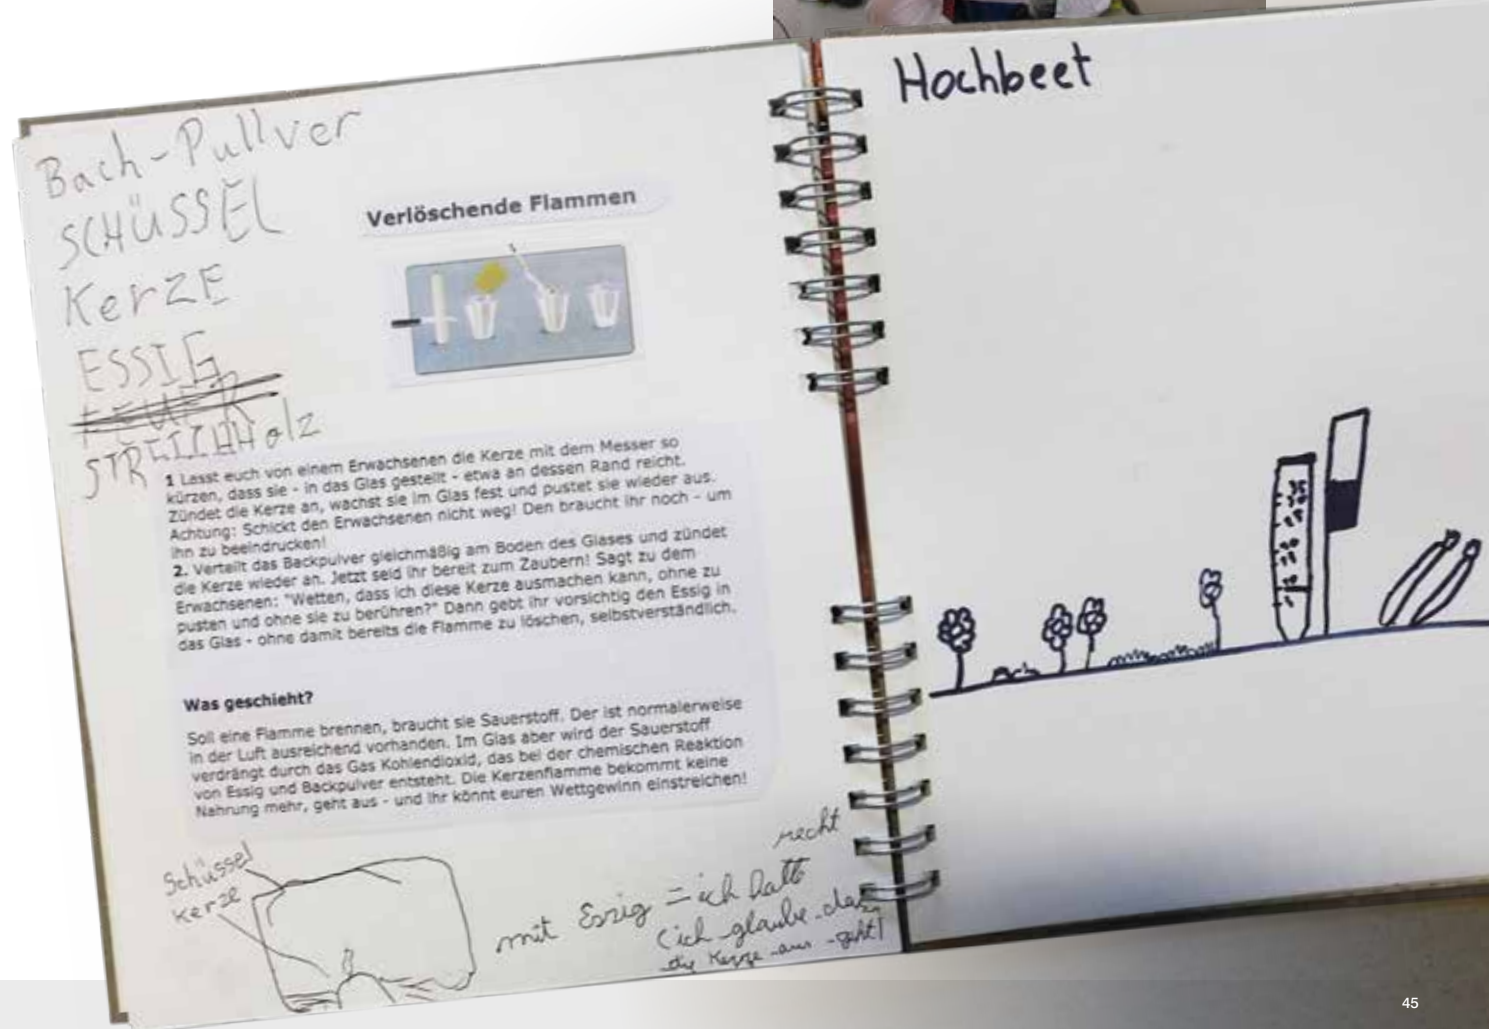 Bach-Pullver
SCHÜSSEL
KerZE
ESSIG
FEUER
STREIIHHolz
Verlöschende Flammen
1 Lasst euch von einem Erwachsenen die Kerze mit dem Messer so
kürzen, dass sie - in das Glas gestellt - etwa an dessen Rand reicht.
Zündet die Kerze an, wachst sie im Glas fest und pustet sie wieder aus.
Achtung: Schickt den Erwachsenen nicht weg! Den braucht ihr noch - um
ihn zu beeindrucken!
2. Verteilt das Backpulver gleichmäßig am Boden des Glases und zündet
die Kerze wieder an. Jetzt seid ihr bereit zum Zaubern! Sagt zu dem
Erwachsenen: "Wetten, dass ich diese Kerze ausmachen kann, ohne zu
pusten und ohne sie zu berühren?" Dann gebt ihr vorsichtig den Essig in
das Glas - ohne damit bereits die Flamme zu löschen, selbstverständlich.
Was geschieht?
Soll eine Flamme brennen, braucht sie Sauerstoff. Der ist normalerweise
in der Luft ausreichend vorhanden. Im Glas aber wird der Sauerstoff
verdrängt durch das Gas Kohlendioxid, das bei der chemischen Reaktion
von Essig und Backpulver entsteht. Die Kerzenflamme bekommt keine
Nahrung mehr, geht aus - und ihr könnt euren Wettgewinn einstreichen!
Schüssel
Kerze
recht
mit Essig = ich hatte
(ich glaube das
die Kerze aus geht)
Hochbeet
45